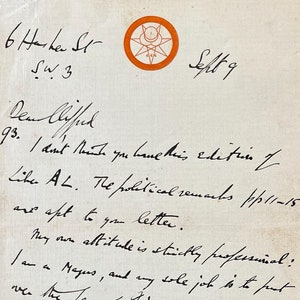 6 Hasker St
S.W. 3
Sept 9
Dear Clifford
93.
I don't think you have this edition of
Liber AL. The political remarks pp 11–15
are apt to your letter.
My own attitude is strictly professional:
I am a Magus, and my sole job is to put
over the